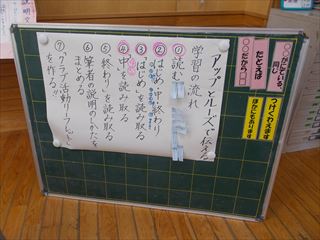 アップとルーズで伝える
学習の流れ
①読む
②はじめ・中・終わり
③「はじめ」を読み取る
④「中」を読み取る
⑤「終わり」を読み取る
⑥筆者の説明のしかたを
まとめる
⑦「クラブ活動リーフレット」
を作る。
たとえば
○○だから□□
つけくわえます
ほかにもあります